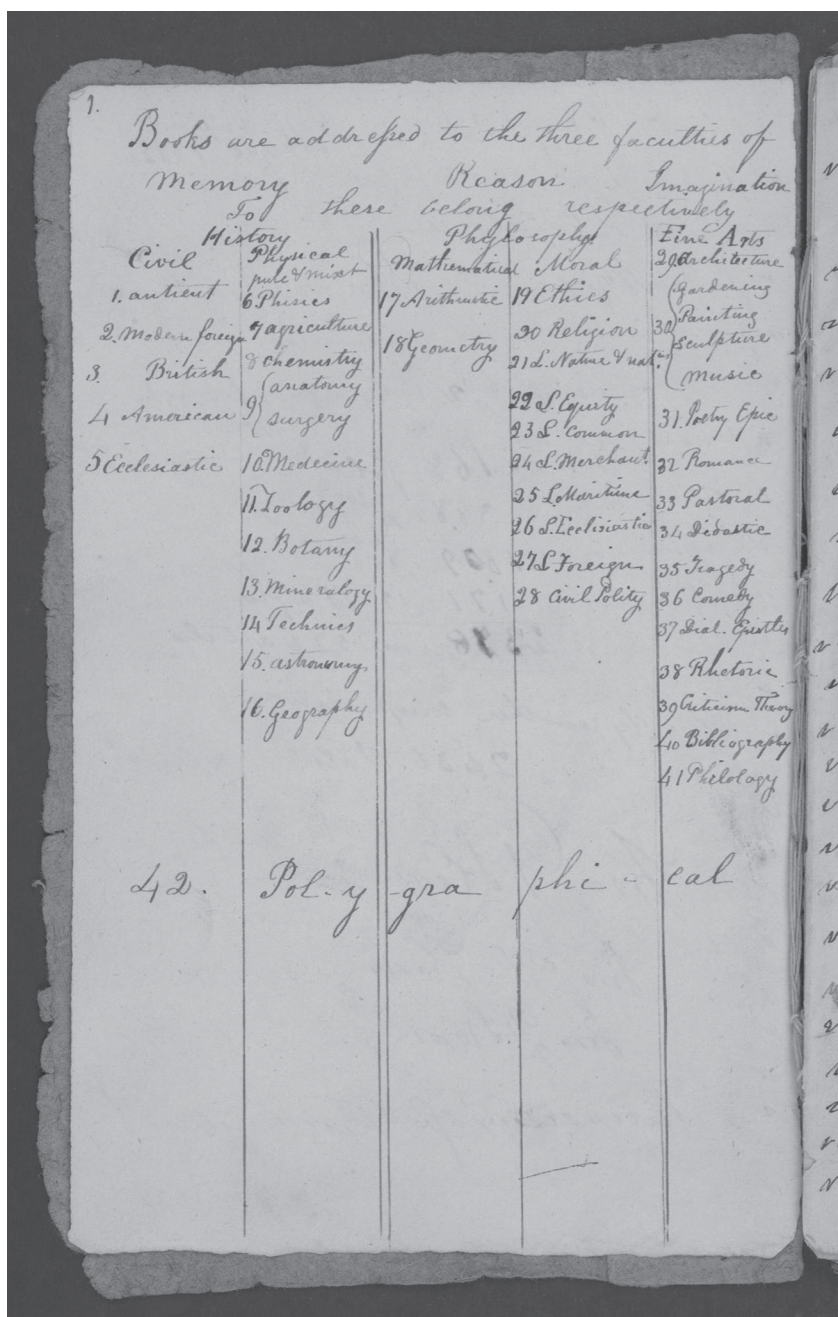 1.
Books are addressed to the three faculties of
Memory Reason Imagination
To these belong respectively
History Phylosophy Fine Arts
Civil
1. antient
2. Modern foreign
3. British
4 American
5 Ecclesiastic
Physical
pure & mixt
6. Phisics
7 agriculture
8 chemistry
9 { anatomy
surgery
10. Medecine
11. Zoology
12. Botany
13. Mineralogy
14 Technics
15. astronomy
16. Geography
Mathematical
17 Arithmetic
18 Geometry
Moral
19 Ethics
20 Religion
21 L. Nature & nat.
22 L. Equity
23 L. Common
24 L. Merchant.
25 L. Maritime
26 L. Eccliziastic
27 L Foreign
28 Civil Polity
29 Architecture
30 { Gardening
Painting
Sculpture
Music
31. Poetry Epic
32 Romance
33 Pastoral
34 Didactic
35 Tragedy
36 Comedy
37 Dial. Epistles
38 Rhetoric
39 Criticism Theory
40 Bibliography
41 Philology
42. Pol-y -gra phi - cal